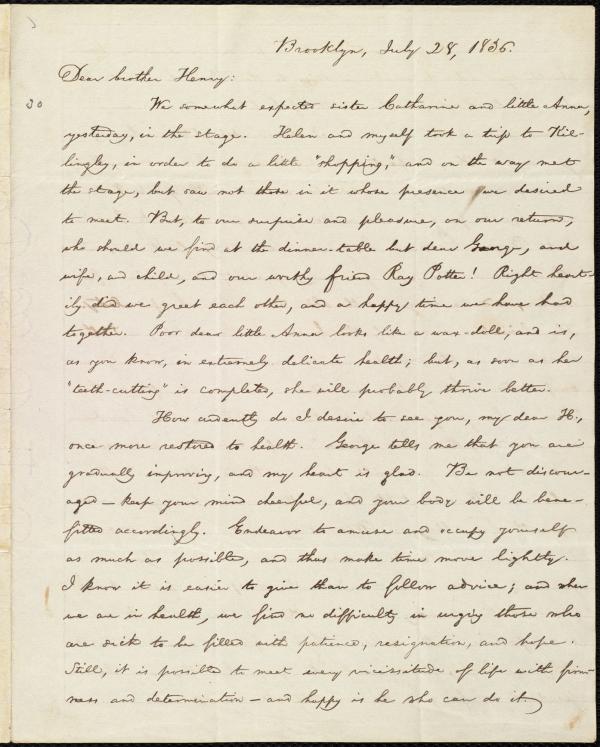 Brooklyn, July 28, 1836.
Dear brother Henry:
30
We somewhat expected sister Catharine and little Anna,
yesterday, in the stage. Helen and myself took a trip to Kil-
lingly, in order to do a little "shopping," and on the way met
the stage, but saw not those in it whose presence we desired
to meet. But, to our surprise and pleasure, on our return,
who should we find at the dinner-table but dear George, and
wife, and child, and our worthy friend Ray Potter! Right heart-
ily did we greet each other, and a happy time we have had
together. Poor dear little Anna looks like a wax-doll, and is,
as you know, in extremely delicate health; but, as soon as her
"teeth-cutting" is completed, she will probably thrive better.
How ardently do I desire to see you, my dear H.,
once more restored to health. George tells me that you are
gradually improving, and my heart is glad. Be not discour-
aged — keep your mind cheerful, and your body will be bene-
fitted accordingly. Endeavor to amuse and occupy yourself
as much as possible, and thus make time move lightly.
I know it is easier to give than to follow advice; and when
we are in health, we find no difficulty in urging those who
are sick to be filled with patience, resignation, and hope.
Still, it is possible to meet every vicissitude of life with firm-
ness and determination — and happy is he who can do it.